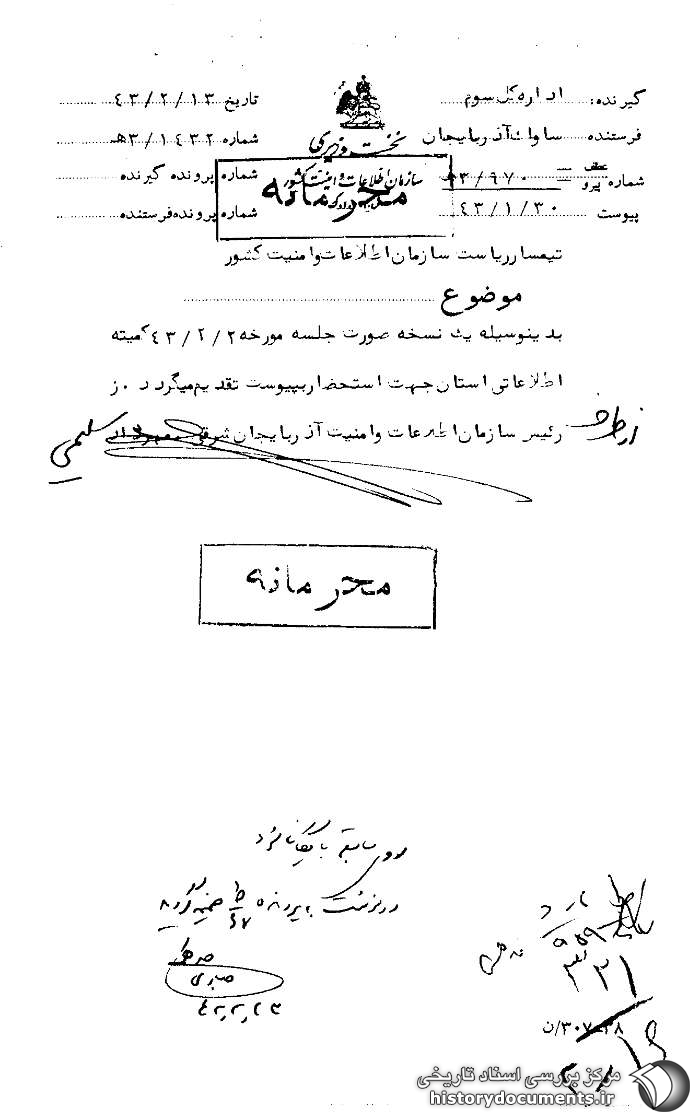 گیرنده: اداره کل سوم
فرستنده ساواک آذربایجان
شماره عطف پیرو ۹۷۰/ ۳ ه
پیوست ۴۳/۱/۳۰
نخست وزیری
سازمان اطلاعات و امنیت کشور
محرمانه
تاریخ ۴۳/۲/۱۳
شماره ۳/۱۴۳۲ه
شماره پرونده گیرنده
شماره پرونده فرستنده
تیمسار ریاست سازمان اطلاعات و امنیت کشور
موضوع
بدینوسیله یک نسخه صورت جلسه مورخه ۴۳/۲/۲ کمیته
اطلاعاتی استان جهت استحضار بپیوست تقدیم میگردد. ز
رئیس سازمان اطلاعات و امنیت آذربایجان شرقی
از طرف
سلیمی
محرمانه
صابری
۳۲۱
۳۰۷-۳۸/ن
مرکز بررسی اسناد تاریخی
historydocuments.ir